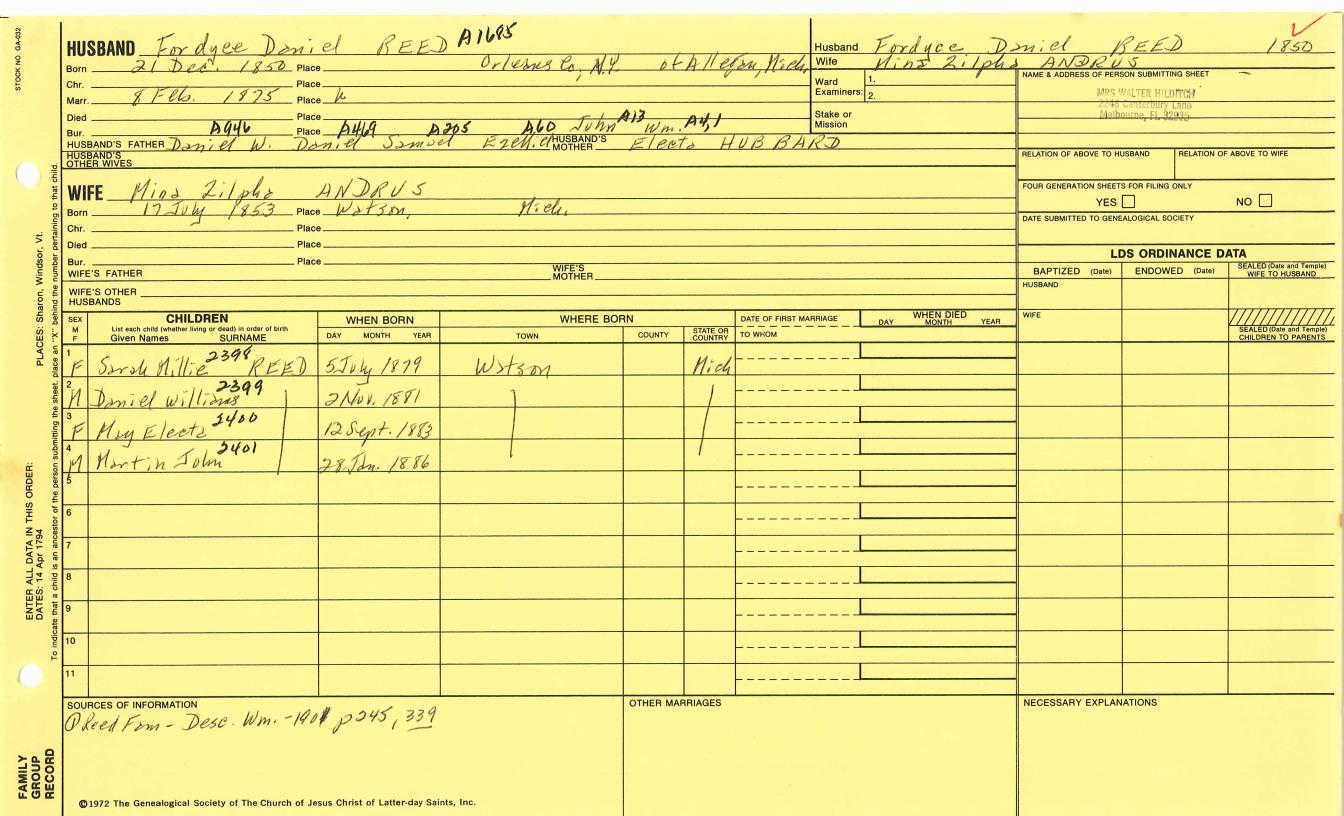 STOCK NO. GA-032
PLACES: Sharon, Windsor, Vt.
ENTER ALL DATA IN THIS ORDER:
DATES: 14 Apr 1794
To indicate that a child is an ancestor of the person submitting the sheet, place an "X" behind the number pertaining to that child.
FAMILY GROUP RECORD
HUSBAND Fordyce Daniel REED A1685
Born 21 Dec. 1850 Place Orleans Co, N.Y. of Allegan, Mich.
Chr. Place
Marr. 8 Feb. 1875 Place
Died Place
Bur. A946 Place A469 A205 A60 John A13 Wm. A4,1
HUSBAND'S FATHER Daniel W. Daniel Samuel HUSBAND'S MOTHER Electa HUBBARD
HUSBAND'S OTHER WIVES
WIFE Mina Zilpha ANDRUS
Born 17 July 1853 Place Watson, Mich.
Chr. Place
Died Place
Bur. Place
WIFE'S FATHER WIFE'S MOTHER
WIFE'S OTHER HUSBANDS
Husband Fordyce Daniel REED 1850
Wife Mina Zilpha ANDRUS
Ward Examiners: 1.
2.
Stake or Mission
NAME & ADDRESS OF PERSON SUBMITTING SHEET
MRS WALTER HILDITCH
2248 Canterbury Lane
Melbourne, FL 32935
RELATION OF ABOVE TO HUSBAND RELATION OF ABOVE TO WIFE
FOUR GENERATION SHEETS FOR FILING ONLY
YES NO
DATE SUBMITTED TO GENEALOGICAL SOCIETY
LDS ORDINANCE DATA
BAPTIZED (Date) ENDOWED (Date) SEALED (Date and Temple) WIFE TO HUSBAND
HUSBAND
WIFE
SEALED (Date and Temple) CHILDREN TO PARENTS
SEX M F CHILDREN WHEN BORN WHERE BORN DATE OF FIRST MARRIAGE WHEN DIED
List each child (whether living or dead) in order of birth
Given Names SURNAME DAY MONTH YEAR TOWN COUNTY STATE OR COUNTRY TO WHOM DAY MONTH YEAR
1 F Sarah Millie 2398 REED 5 July 1879 Watson Mich
2 M Daniel William 2399 2 Nov. 1881
3 F May Electa 2400 12 Sept. 1883
4 M Martin John 2401 28 Jan. 1886
5
6
7
8
9
10
11
SOURCES OF INFORMATION OTHER MARRIAGES NECESSARY EXPLANATIONS
① Reed Fam - Desc. Wm. - 1901 p 245, 339
©1972 The Genealogical Society of The Church of Jesus Christ of Latter-day Saints, Inc.